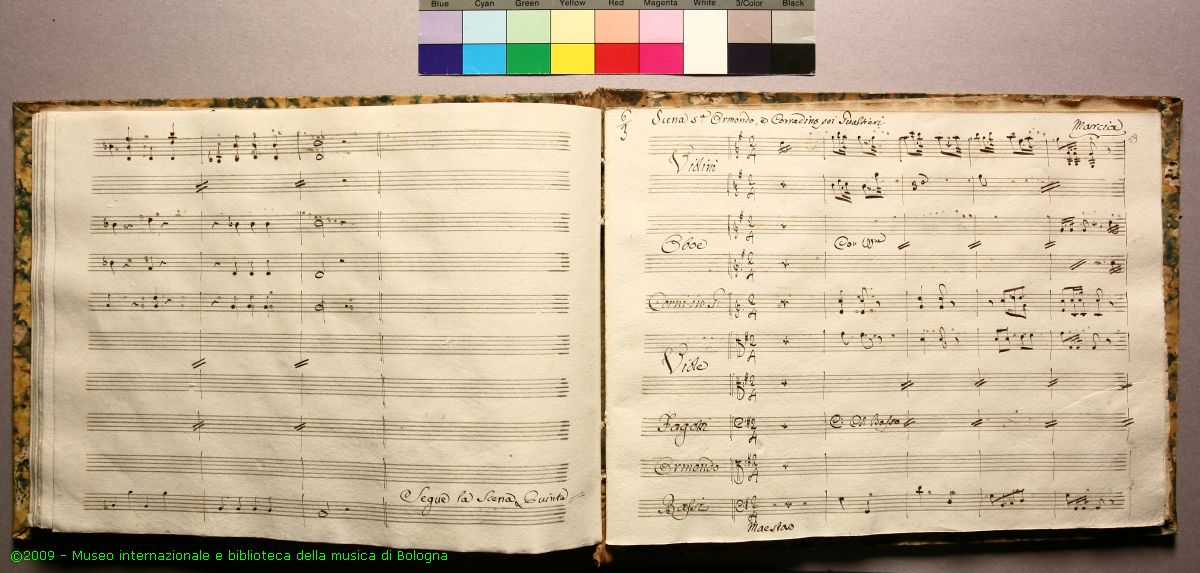 Blue Cyan Green Yellow Red Magenta White 3/Color Black
Segue la Scena Quinta
Scena 5ª Ormondo, e Corradino poi Gualtieri
Marcia
59
Violini
Oboe
Con VVni
Corni in G.
Viole
Fagotti
Col Basso
Ormondo
Bassi
Maestoso
©2009 - Museo internazionale e biblioteca della musica di Bologna